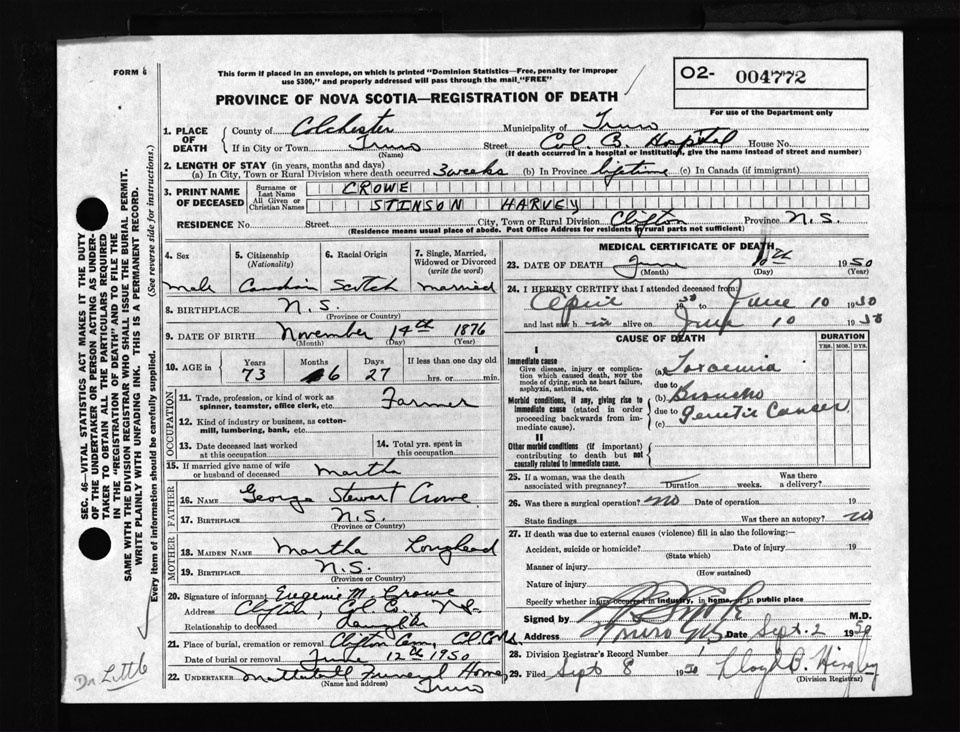 FORM 6
This form if placed in an envelope, on which is printed "Dominion Statistics—Free, penalty for improper
use $300," and properly addressed will pass through the mail, "FREE"
O2- 004772
For use of the Department only
PROVINCE OF NOVA SCOTIA—REGISTRATION OF DEATH
1. PLACE OF DEATH { County of Colchester Municipality of Truro
If in City or Town Truro (Name) Street Col. Co. Hospital House No.
(If death occurred in a hospital or institution, give the name instead of street and number)
2. LENGTH OF STAY (in years, months and days)
(a) In City, Town or Rural Division where death occurred 3 weeks (b) In Province lifetime (c) In Canada (if immigrant)
3. PRINT NAME OF DECEASED { Surname or Last Name CROWE
All Given or Christian Names STINSON HARVEY
RESIDENCE No. Street City, Town or Rural Division Clifton Province N.S.
(Residence means usual place of abode. Post Office Address for residents by rural parts not sufficient)
4. Sex
male
5. Citizenship (Nationality)
Canadian
6. Racial Origin
Scotch
7. Single, Married, Widowed or Divorced (write the word)
married
8. BIRTHPLACE N.S.
(Province or County)
9. DATE OF BIRTH November 14th 1876
(Month) (Day) (Year)
10. AGE in { Years 73 Months 6 Days 27 If less than one day old
hrs. or min.
OCCUPATION
11. Trade, profession or kind of work as spinner, teamster, office clerk, etc. Farmer
12. Kind of industry or business, as cotton-mill, lumbering, bank, etc.
13. Date deceased last worked at this occupation
14. Total yrs. spent in this occupation
15. If married give name of wife or husband of deceased Martha
FATHER
16. NAME George Stewart Crowe
17. BIRTHPLACE N.S.
(Province or County)
MOTHER
18. MAIDEN NAME Martha Loughead
19. BIRTHPLACE N.S.
(Province or County)
20. Signature of informant Eugenie M. Crowe
Address Clifton, Col Co., N.S.
Relationship to deceased daughter
21. Place of burial, cremation or removal Clifton Cem, Col. Co. N.S.
Date of burial or removal June 12th 1950
22. UNDERTAKER Mattatall Funeral Home,
(Name and address) Truro
MEDICAL CERTIFICATE OF DEATH
23. DATE OF DEATH June 10th 1950
(Month) (Day) (Year)
24. I HEREBY CERTIFY that I attended deceased from:
April 1950 to June 10 1950
and last saw him alive on June 10 1950
CAUSE OF DEATH
DURATION
YRS. MOS. DYS.
I
Immediate cause
Give disease, injury or complication which caused death, NOT the mode of dying, such as heart failure, asphyxia, asthenia, etc.
(a) Toxaemia
due to
Morbid conditions, if any, giving rise to immediate cause (stated in order proceeding backwards from immediate cause).
(b) Broncho
due to genetic Cancer
(c)
II
Other morbid conditions (if important) contributing to death but not causally related to immediate cause.
25. If a woman, was the death associated with pregnancy? Duration weeks. Was there a delivery?
26. Was there a surgical operation? no Date of operation 19
State findings Was there an autopsy? no
27. If death was due to external causes (violence) fill in also the following:—
Accident, suicide or homicide? (State which) Date of injury 19
Manner of injury (How sustained)
Nature of injury
Specify whether injury occurred in industry, in home, or in public place
Signed by M.D.
Address Truro N.S. Date Sept. 2 1950
28. Division Registrar's Record Number
29. Filed Sept 8 1950 Lloyd
(Division Registrar)
SEC. 46—VITAL STATISTICS ACT MAKES IT THE DUTY
OF THE UNDERTAKER OR PERSON ACTING AS UNDER-
TAKER TO OBTAIN ALL THE PARTICULARS REQUIRED
IN THE "REGISTRATION OF DEATH" AND TO FILE THE
SAME WITH THE DIVISION REGISTRAR WHO SHALL ISSUE THE BURIAL PERMIT.
WRITE PLAINLY WITH UNFADING INK. THIS IS A PERMANENT RECORD.
Every item of information should be carefully supplied. (See reverse side for instructions.)
Dr. Little